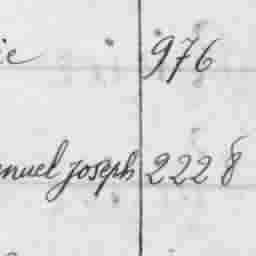 ie 976
nuel joseph 2228